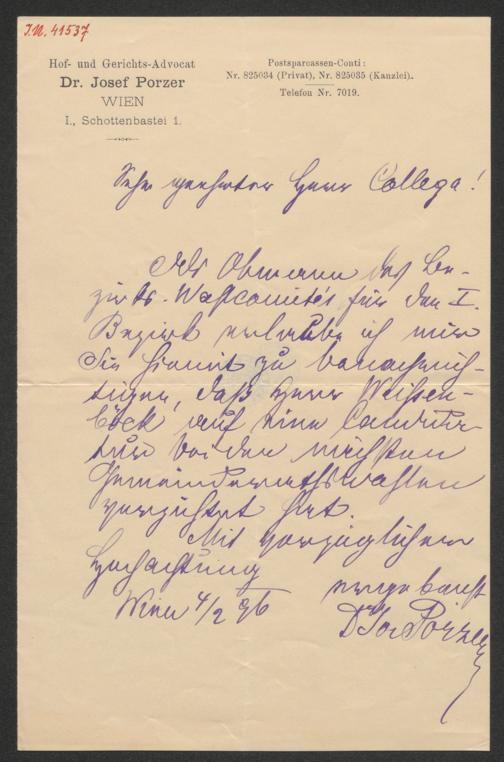 I.N. 41537
Hof- und Gerichts-Advocat
Dr. Josef Porzer
WIEN
I., Schottenbastei 1.
Postsparcassen-Conti:
Nr. 825034 (Privat), Nr. 825035 (Kanzlei).
Telefon Nr. 7019.
Sehr geehrter Herr Collega!
Als Obmann des Be-
zirks-Wahlcomités für den I.
Bezirk erlaube ich mir
Sie hiemit zu benachrich-
tigen, daß Herr Weissen-
böck auf eine Candida-
tur bei den nächsten
Gemeinderathswahlen
verzichtet hat.
Mit vorzüglicher
Hochachtung
ergebenst
Wien 4/2 96
Dr Jos Porzer